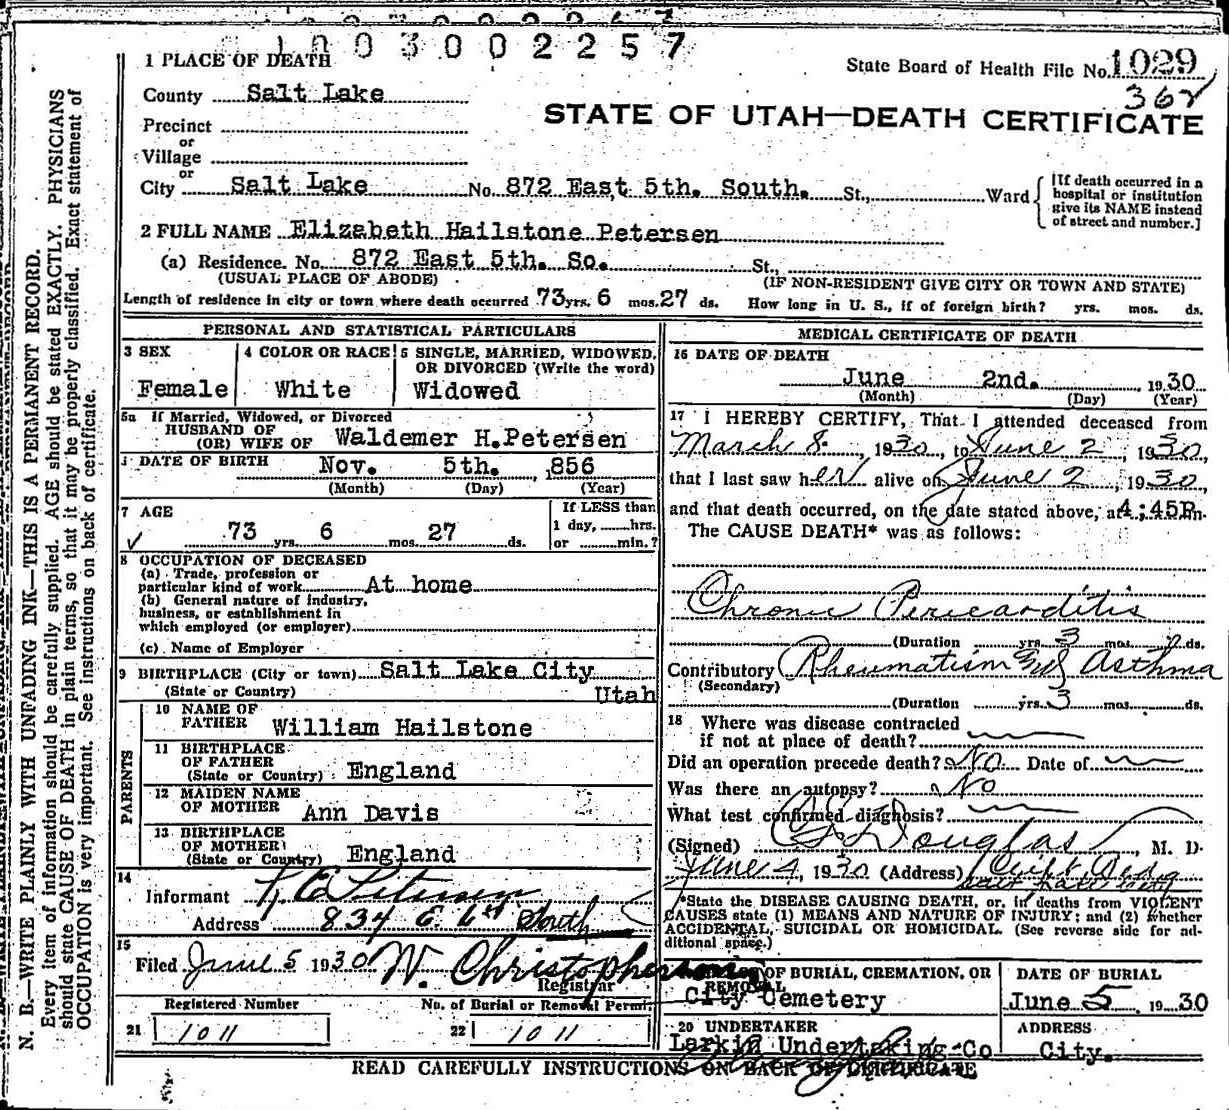 1003002257
1 PLACE OF DEATH
State Board of Health File No. 1029
County Salt Lake
362
STATE OF UTAH—DEATH CERTIFICATE
Precinct
or
Village
or
City Salt Lake No. 872 East 5th. South. St., Ward
[If death occurred in a
hospital or institution
give its NAME instead
of street and number.]
2 FULL NAME Elizabeth Hailstone Petersen
(a) Residence. No. 872 East 5th. So. St.,
(USUAL PLACE OF ABODE) (IF NON-RESIDENT GIVE CITY OR TOWN AND STATE)
Length of residence in city or town where death occurred 73 yrs. 6 mos. 27 ds. How long in U. S., if of foreign birth? yrs. mos. ds.
PERSONAL AND STATISTICAL PARTICULARS
3 SEX
Female
4 COLOR OR RACE
White
5 SINGLE, MARRIED, WIDOWED,
OR DIVORCED (Write the word)
Widowed
5a If Married, Widowed, or Divorced
HUSBAND OF
(OR) WIFE OF Waldemer H. Petersen
DATE OF BIRTH Nov. 5th. , 856
(Month) (Day) (Year)
7 AGE
73 yrs. 6 mos. 27 ds.
If LESS than
1 day, hrs.
or min.?
8 OCCUPATION OF DECEASED
(a) Trade, profession or
particular kind of work At home
(b) General nature of industry,
business, or establishment in
which employed (or employer)
(c) Name of Employer
9 BIRTHPLACE (City or town) Salt Lake City
(State or Country) Utah
PARENTS
10 NAME OF
FATHER William Hailstone
11 BIRTHPLACE
OF FATHER
(State or Country) England
12 MAIDEN NAME
OF MOTHER Ann Davis
13 BIRTHPLACE
OF MOTHER
(State or Country) England
14
Informant Petersen
Address 834 E. 6th South
15
Filed June 5 1930 W. Christopherson
Registrar
Registered Number
21 1011
No. of Burial or Removal Permit
22 1011
MEDICAL CERTIFICATE OF DEATH
16 DATE OF DEATH
June 2nd. , 1930
(Month) (Day) (Year)
17 I HEREBY CERTIFY, That I attended deceased from
March 8. , 1930, to June 2 , 1930,
that I last saw her alive on June 2 , 1930,
and that death occurred, on the date stated above, at 4:45P.m.
The CAUSE DEATH* was as follows:
Chronic Pericarditis
(Duration yrs. 3 mos. ds.
Contributory Rheumatism and Asthma
(Secondary)
(Duration yrs. 3 mos. ds.
18 Where was disease contracted
if not at place of death?
Did an operation precede death? No Date of
Was there an autopsy? No
What test confirmed diagnosis?
(Signed) Douglas , M. D.
June 4, 1930 (Address)
Salt Lake City
*State the DISEASE CAUSING DEATH, or, in deaths from VIOLENT
CAUSES state (1) MEANS AND NATURE OF INJURY; and (2) whether
ACCIDENTAL, SUICIDAL OR HOMICIDAL. (See reverse side for ad-
ditional space.)
OF BURIAL, CREMATION, OR
REMOVAL
City Cemetery
DATE OF BURIAL
June 5 , 1930
20 UNDERTAKER
Larkin Undertaking Co
ADDRESS
City.
READ CAREFULLY INSTRUCTIONS ON BACK OF CERTIFICATE
N. B.—WRITE PLAINLY WITH UNFADING INK—THIS IS A PERMANENT RECORD.
Every item of information should be carefully supplied. AGE should be stated EXACTLY. PHYSICIANS
should state CAUSE OF DEATH in plain terms, so that it may be properly classified. Exact statement of
OCCUPATION is very important. See instructions on back of certificate.